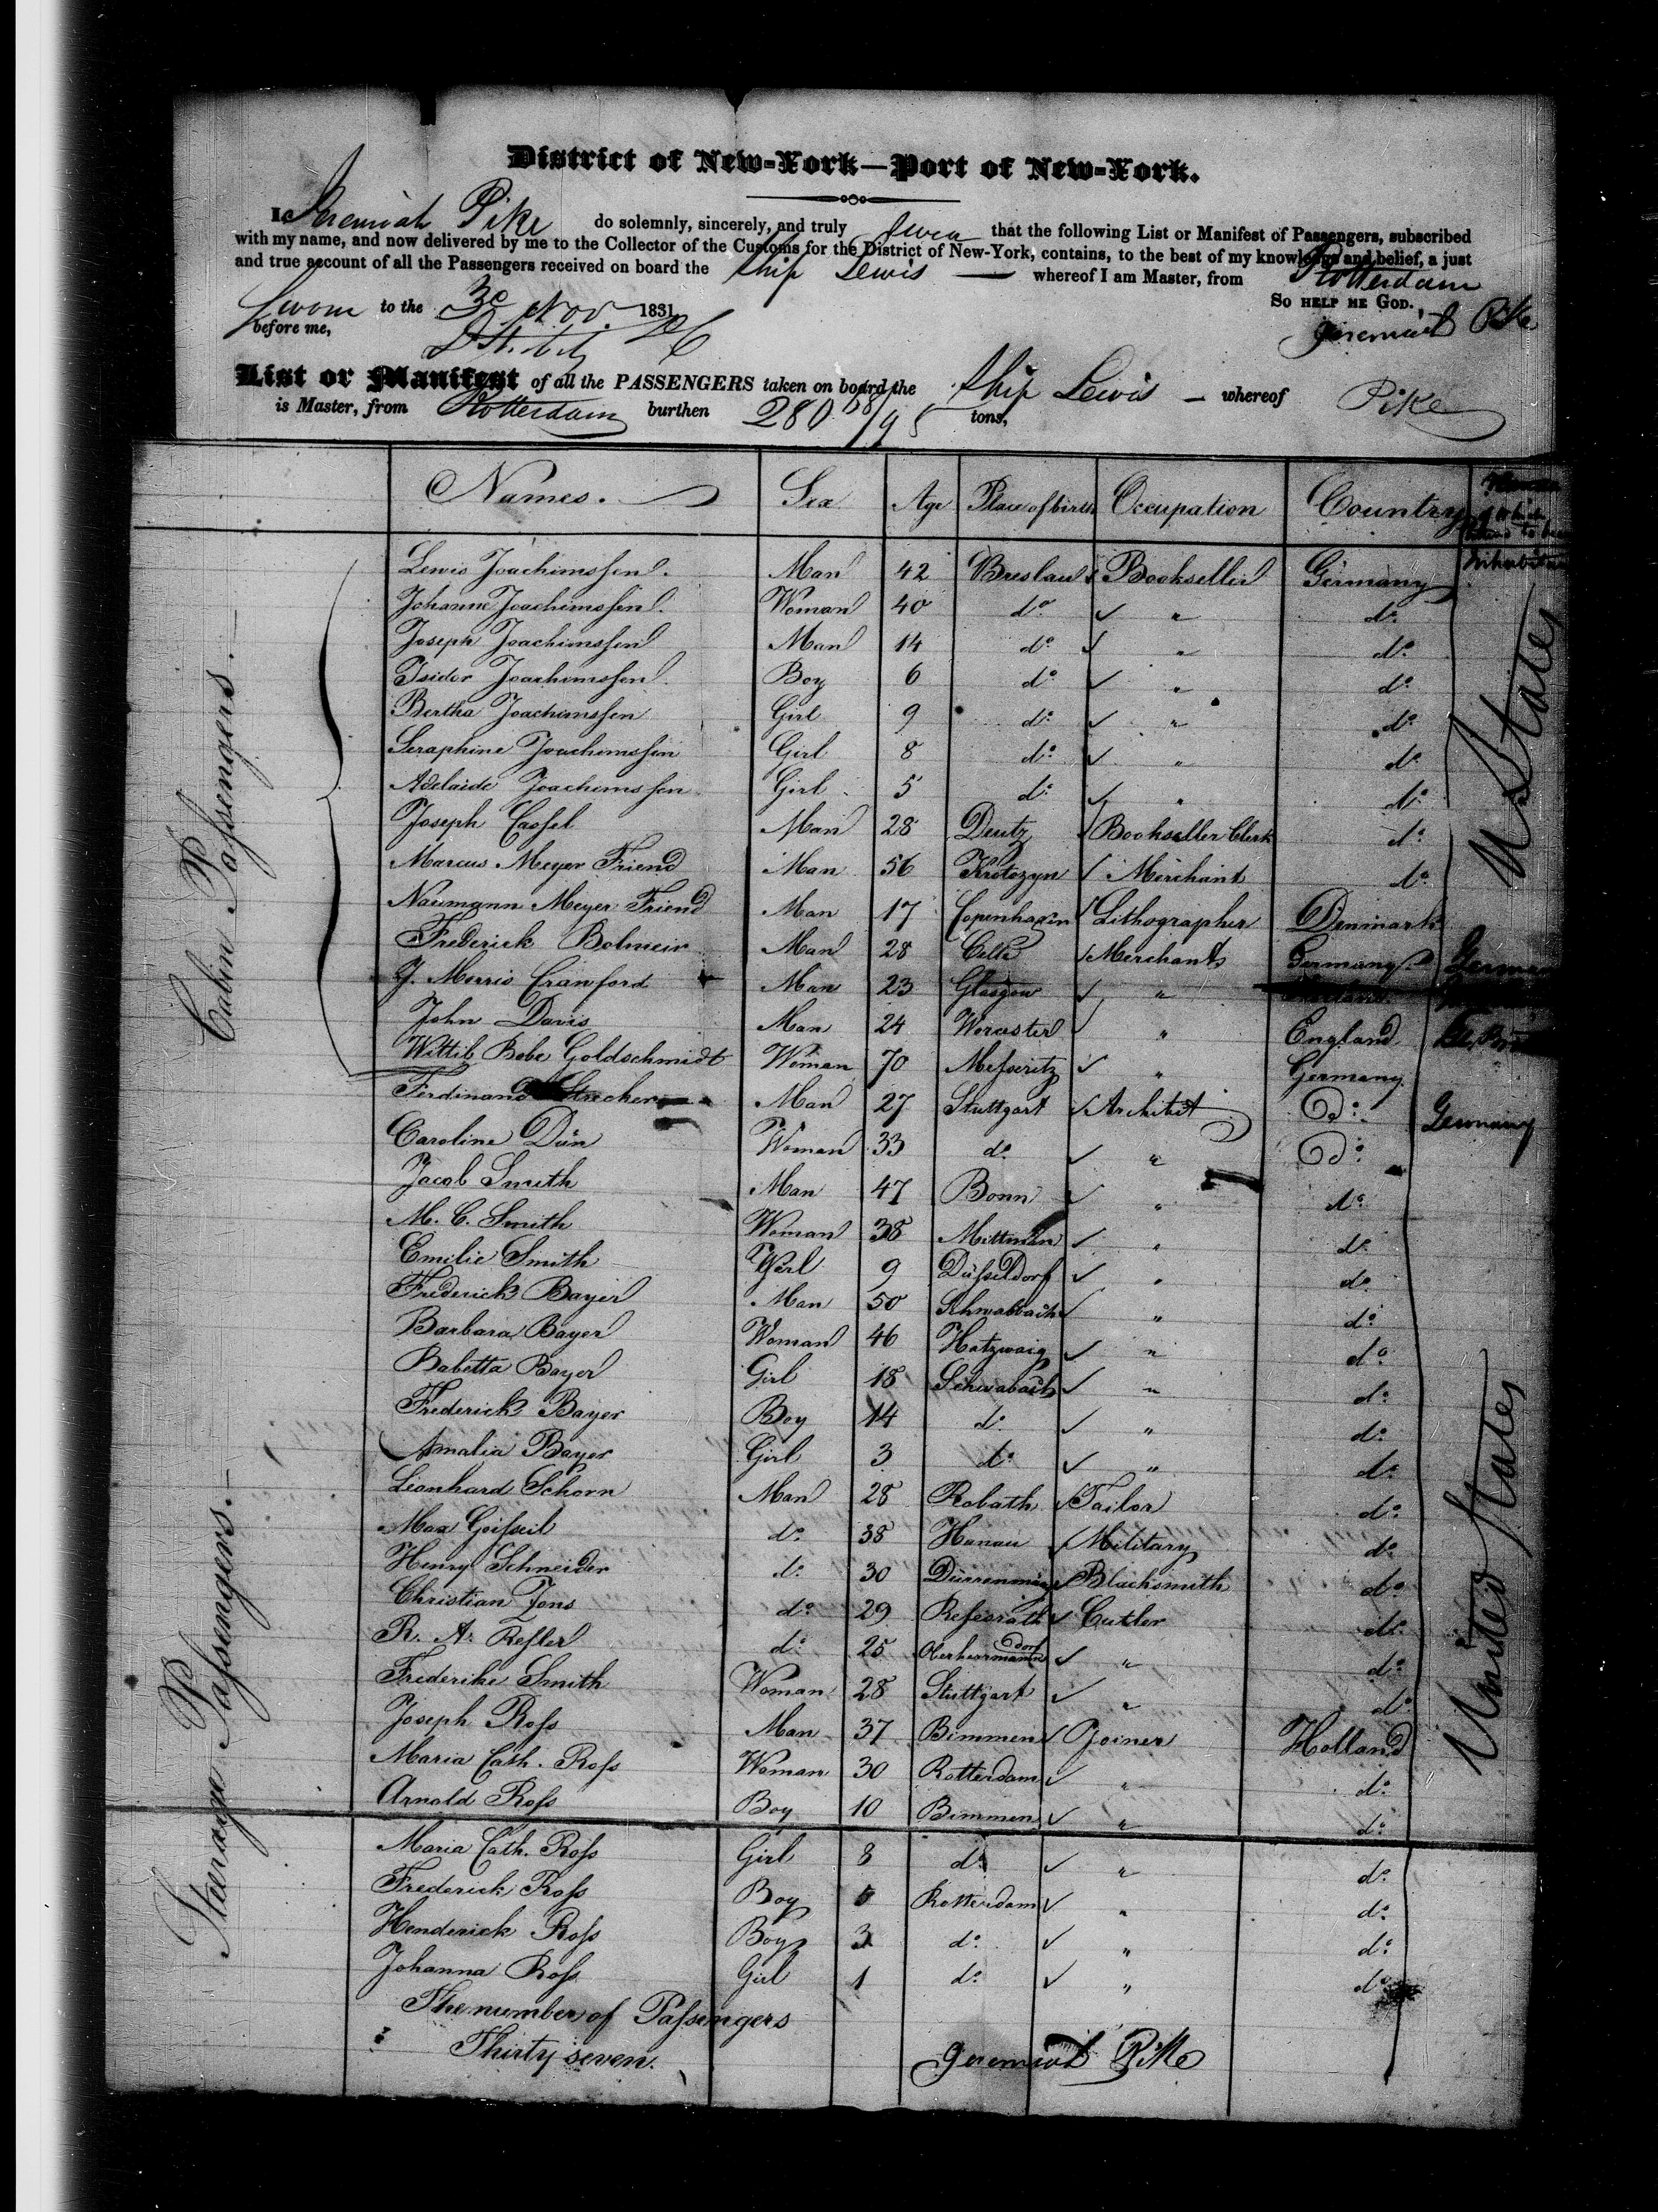 District of New-York—Port of New-York.
I, Jeremiah Pike do solemnly, sincerely, and truly swear that the following List or Manifest of Passengers, subscribed
with my name, and now delivered by me to the Collector of the Customs for the District of New-York, contains, to the best of my knowledge and belief, a just
and true account of all the Passengers received on board the Ship Lewis — whereof I am Master, from Rotterdam
Sworn to the 30 Nov. 1831 So help me God.
before me, Jeremiah Pike
List or Manifest of all the PASSENGERS taken on board the Ship Lewis — whereof Pike
is Master, from Rotterdam burthen 280 /95 tons,
Names. Sex Age Place of birth Occupation Country
Inhabitants
Cabin Passengers.
Lewis Joachimssen. Man 42 Breslau Bookseller Germany
Johanne Joachimssen. Woman 40 do ✓ " do
Joseph Joachimssen Man 14 do ✓ " do
Isidor Joachimssen. Boy 6 do ✓ " do
Bertha Joachimssen Girl 9 do ✓ " do
Seraphine Joachimssen Girl 8 do ✓ " do
Adelaide Joachimssen Girl 5 do ✓ " do
U States
Joseph Cassel Man 28 Deutz ✓ Bookseller Clerk do
Marcus Meyer Friend Man 56 Krotozyn ✓ Merchant do
Naumann Meyer Friend Man 17 Copenhagen ✓ Lithographer Denmark
Frederick Bolmeir Man 28 Celle ✓ Merchants Germany
J. Morris Crawford Man 23 Glasgow ✓ "
John Davis Man 24 Worcester ✓ " England
Wittib Bebe Goldschmidt Woman 70 Messeritz ✓ " Germany
Ferdinand Man 27 Stuttgart ✓ Architect Do Germany
Caroline Dün Woman 33 do ✓ " Do
Jacob Smith Man 47 Bonn ✓ " do
M. C. Smith Woman 38 Mittman ✓ " do
Emilie Smith Girl 9 Düsseldorf ✓ " do
Frederick Bayer Man 50 Schwabbach ✓ " do
Barbara Bayer Woman 46 Hatzwaig ✓ " do
Babetta Bayer Girl 18 Schwabach ✓ " do
Frederick Bayer Boy 14 do ✓ " do
Amalia Bayer Girl 3 do ✓ " do
Steerage Passengers.
Lionhard Schorn Man 28 Robath ✓ Tailor do
Max Goifseil do 38 Hanau ✓ Military do
Henry Schneider do 30 ✓ Blacksmith do
Christian Zons do 29 Refesrath ✓ Cutler do
R. A. Refler do 25 ✓ " do
Frederike Smith Woman 28 Stuttgart ✓ " do
United States
Joseph Ross Man 37 Bimmen ✓ Joiner Holland
Maria Cath. Ross Woman 30 Rotterdam ✓ " do
Arnold Ross Boy 10 Bimmen ✓ " do
Maria Cath. Ross Girl 8 do ✓ " do
Frederick Ross Boy 5 Rotterdam ✓ " do
Henderick Ross Boy 3 do ✓ " do
Johanna Ross Girl 1 do ✓ " do
The number of Passengers
Thirty seven. Jeremiah Pike